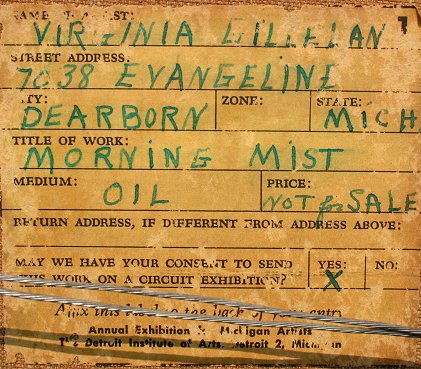 NAME OF ARTIST: 1
VIRGINIA GILLELAN
STREET ADDRESS:
7038 EVANGELINE
CITY: ZONE: STATE:
DEARBORN MICH
TITLE OF WORK:
MORNING MIST
MEDIUM: PRICE:
OIL NOT for SALE
RETURN ADDRESS, IF DIFFERENT FROM ADDRESS ABOVE:
MAY WE HAVE YOUR CONSENT TO SEND YES: NO:
THIS WORK ON A CIRCUIT EXHIBITION? X
Affix this label to the back of your entry
Annual Exhibition for Michigan Artists
The Detroit Institute of Arts, Detroit 2, Michigan